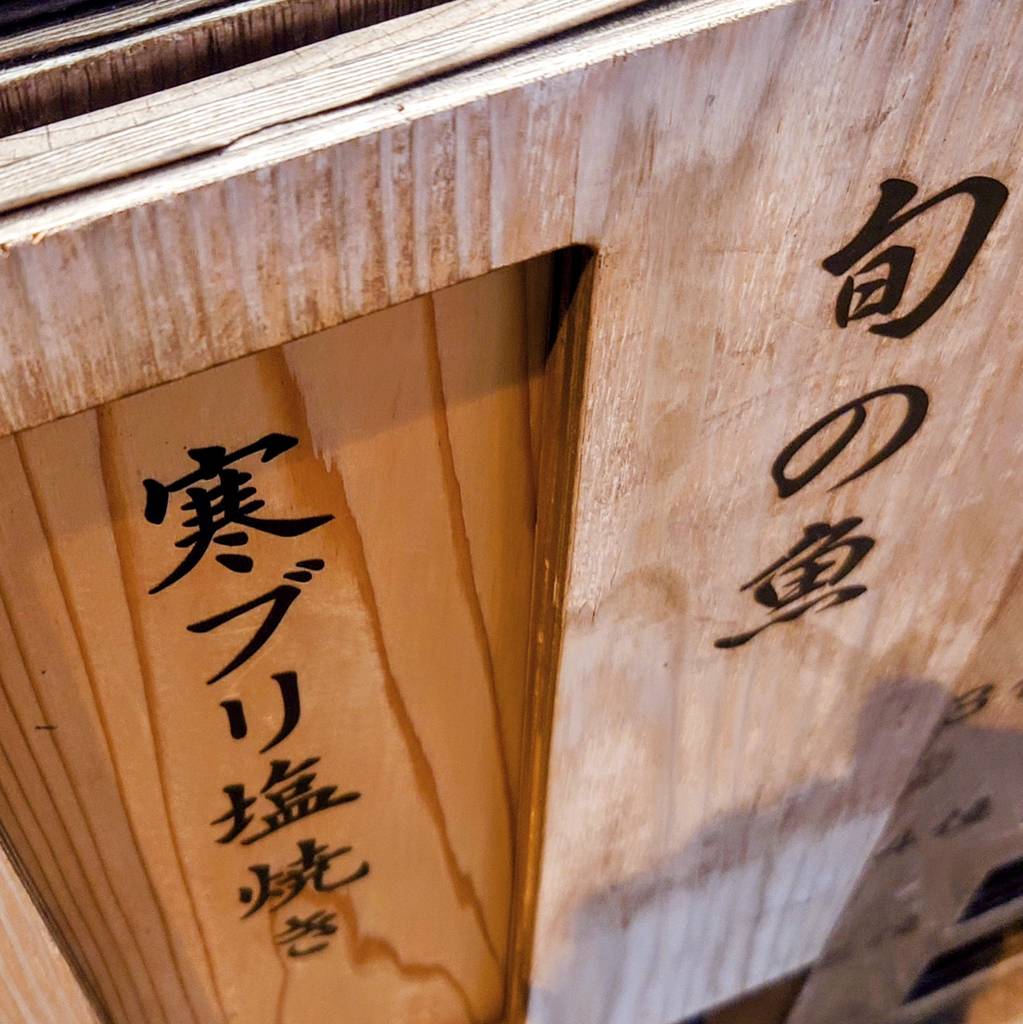 旬の魚
寒ブリ塩焼き